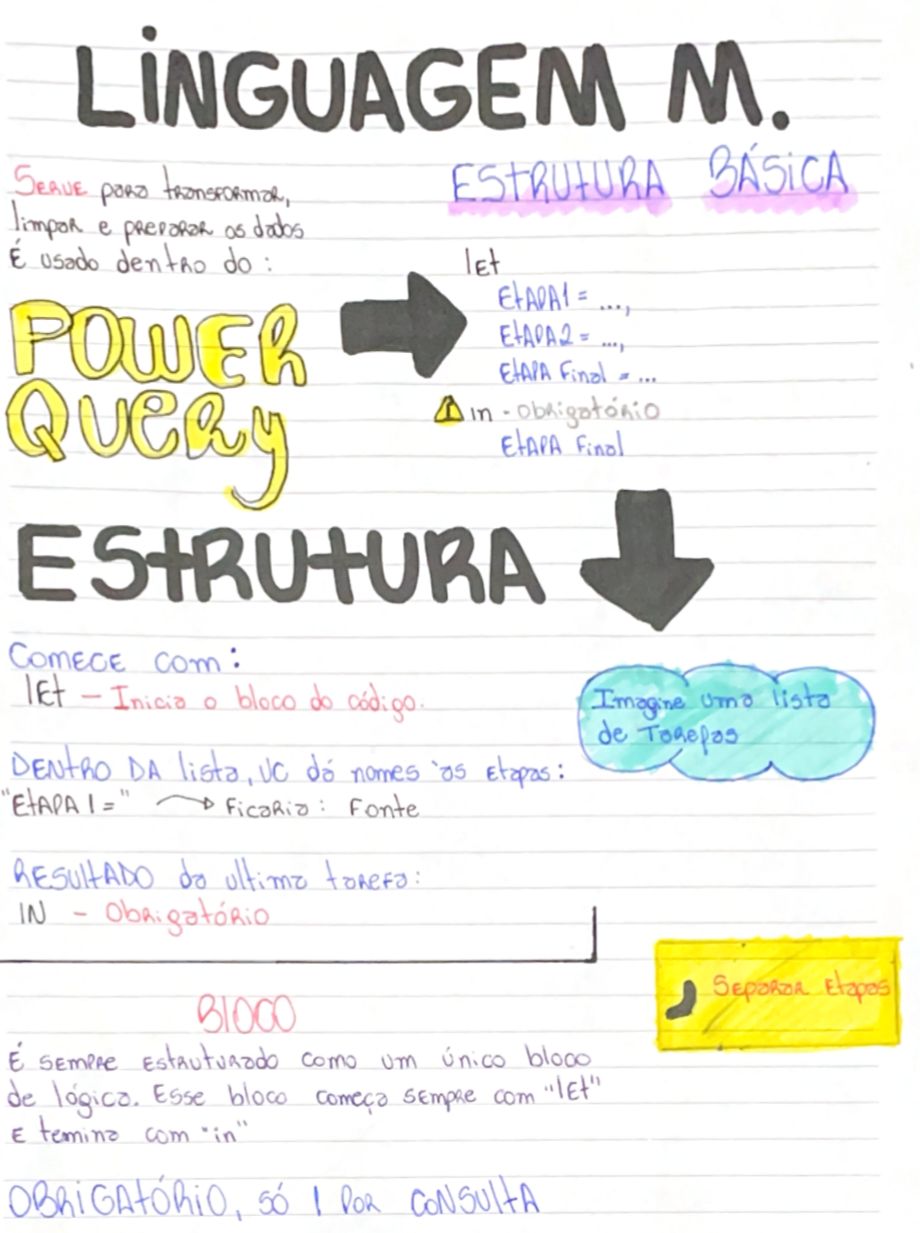 LINGUAGEM M.
SERVE para transformar,
limpar e preparar os dados
É usado dentro do :
POWER
QUERY
ESTRUTURA BÁSICA
let
ETAPA1 = ...,
ETAPA2 = ...,
ETAPA Final = ...
in - obrigatório
ETAPA Final
ESTRUTURA
COMECE com:
let - Inicia o bloco do código.
Imagine uma lista
de Tarefas
DENTRO DA lista, VC dá nomes às Etapas:
"ETAPA 1 =" → Ficaria : Fonte
RESULTADO da ultima tarefa:
IN - Obrigatório
, Separar Etapas
Bloco
É SEMPRE ESTRUTURADO como um único bloco
de lógica. Esse bloco começa sempre com "let"
E temina com "in"
OBRIGATÓRIO, só 1 POR CONSULTA